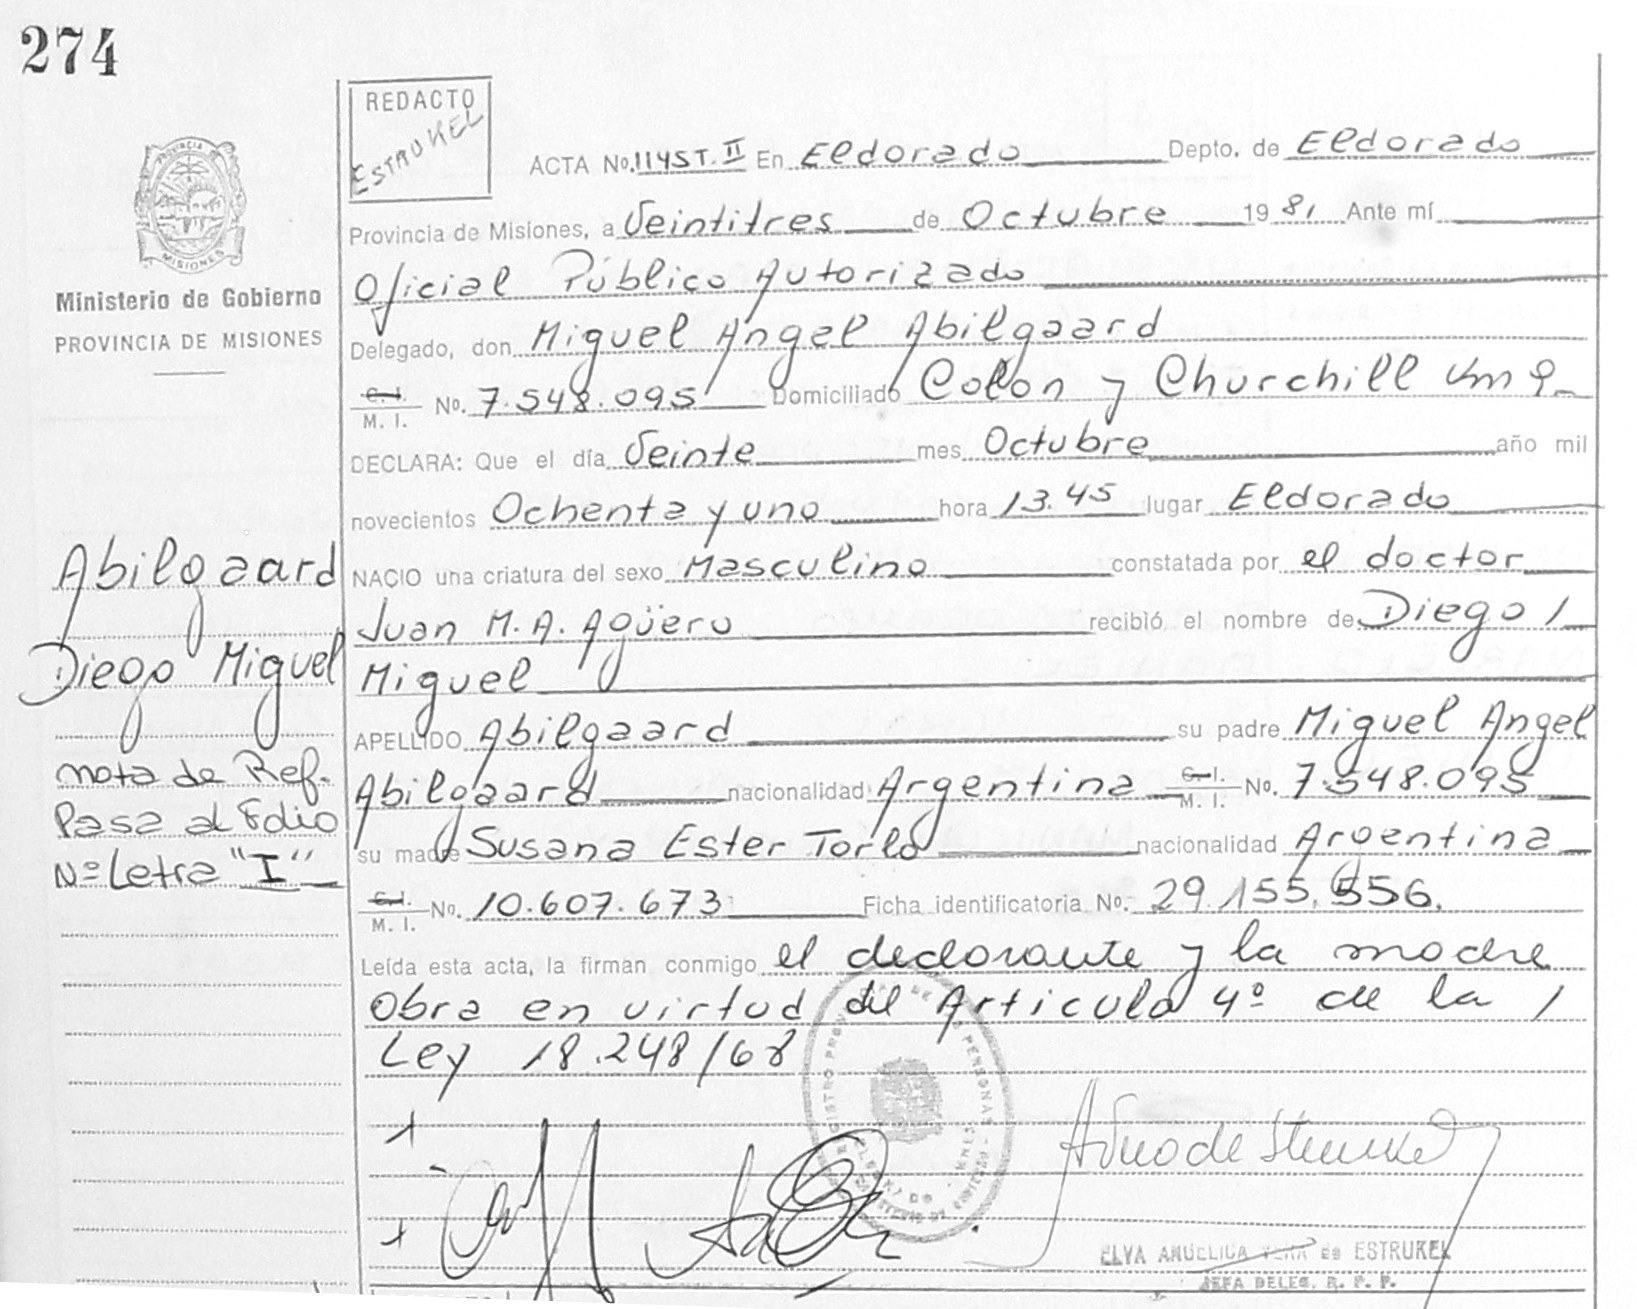 274
REDACTO
ESTRUKEL
ACTA No. 1145 T. II En Eldorado Depto. de Eldorado
Provincia de Misiones, a Veintitres de Octubre 1981 Ante mí
Oficial Público Autorizado
Delegado, don Miguel Angel Abilgaard
C. I.
M. I. No. 7.548.095 Domiciliado Colon y Churchill Km 9
DECLARA: Que el día Veinte mes Octubre año mil
novecientos Ochenta y uno hora 13.45 lugar Eldorado
NACIO una criatura del sexo Masculino constatada por el doctor
Juan M. A. Agüero recibió el nombre de Diego /
Miguel
APELLIDO Abilgaard su padre Miguel Angel
Abilgaard nacionalidad Argentina C. I. M. I. No. 7.548.095
su madre Susana Ester Torlo nacionalidad Argentina
C. I.
M. I. No. 10.607.673 Ficha identificatoria No. 29.155.556.
Leída esta acta, la firman conmigo el declarante y la madre
Obra en virtud del Articulo 4º de la /
Ley 18.248/68
ELVA ANGELICA de ESTRUKEL
JEFA DELEG. R. P. P.
MISIONES
Ministerio de Gobierno
PROVINCIA DE MISIONES
Abilgaard
Diego Miguel
nota de Ref.
Pasa al Folio
Nº Letra "I"